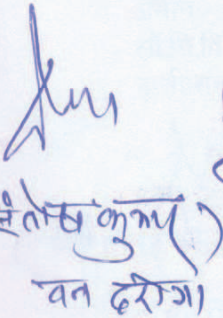 संतोष कुमार)
वन दरोगा